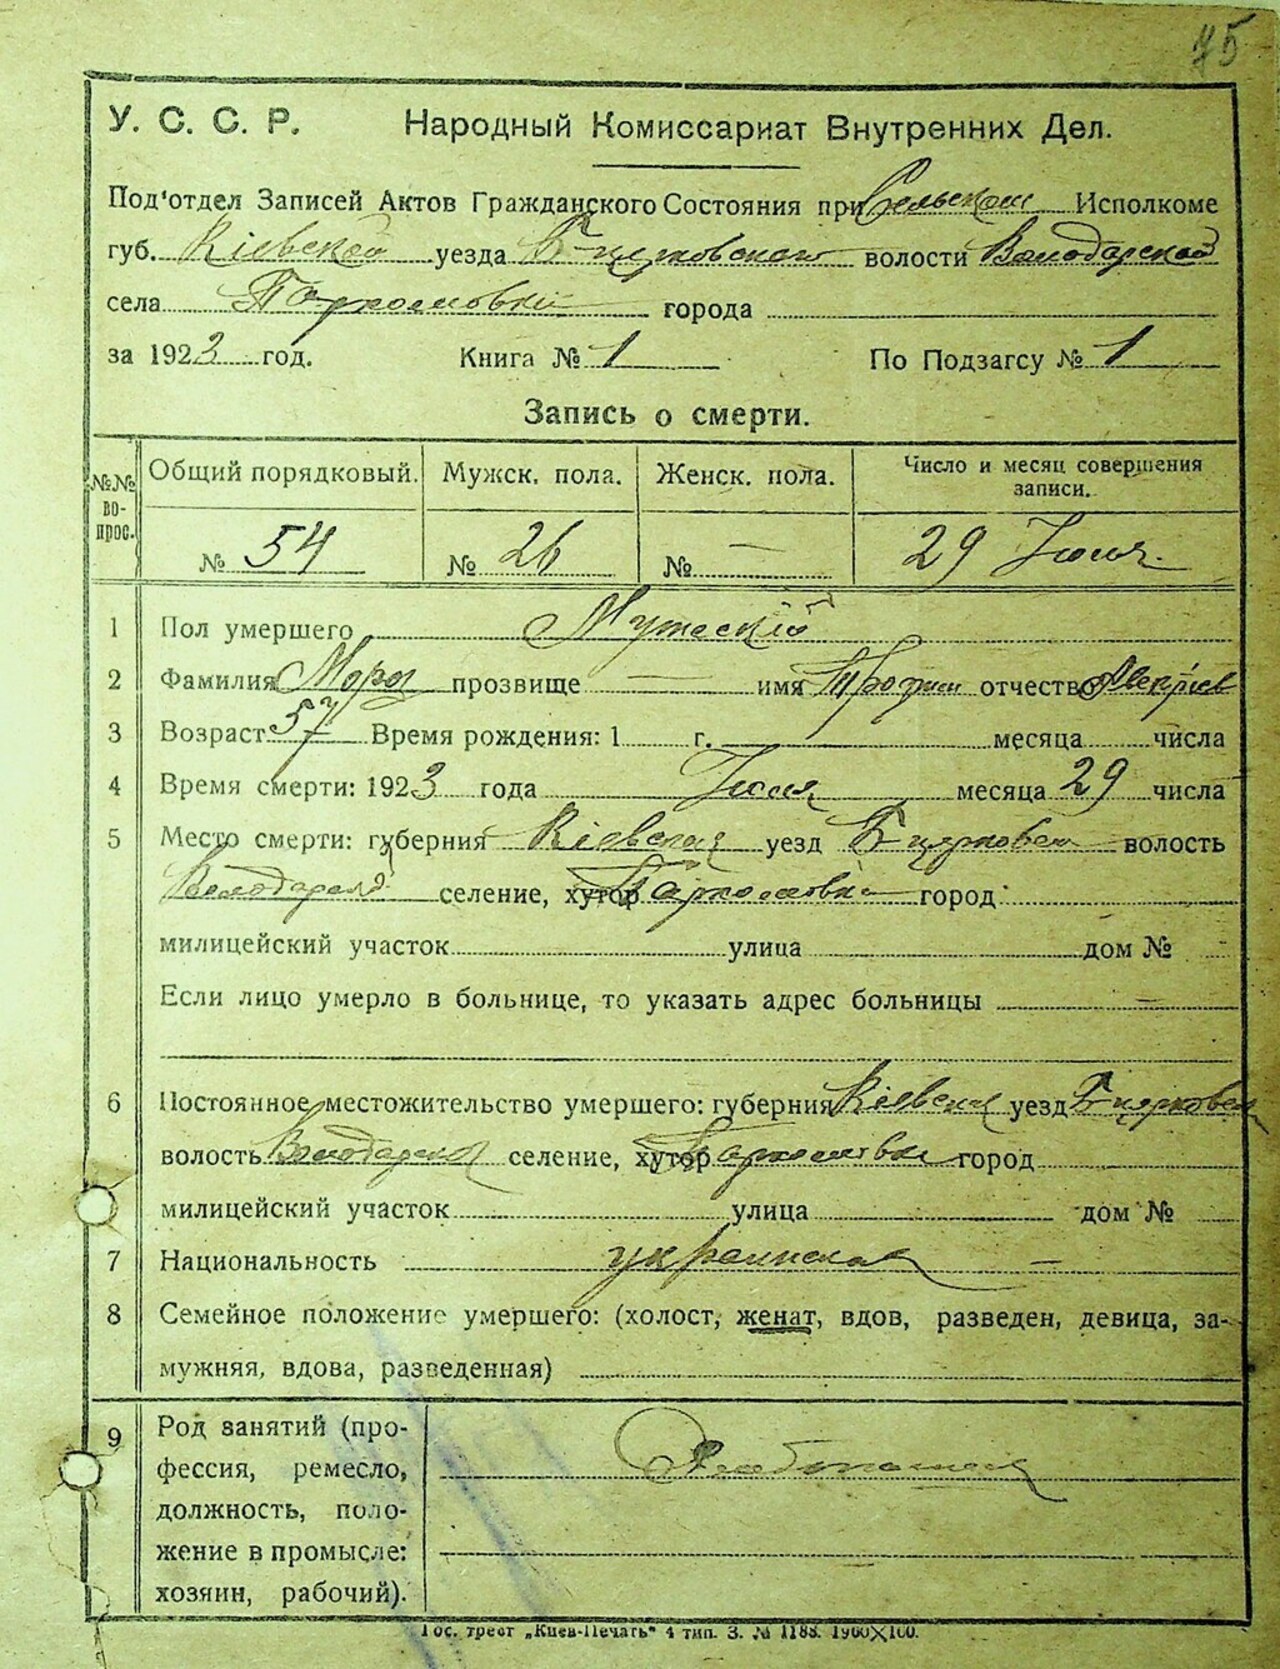 75
У. С. С. Р. Народный Комиссариат Внутренних Дел.
Под'отдел Записей Актов Гражданского Состояния при Сельском Исполкоме
губ. Кіевской уезда Б-церковского волости Володарской
села города
за 1923 год. Книга № 1 По Подзагсу № 1
Запись о смерти.
№№ вопрос. Общий порядковый. Мужск. пола. Женск. пола. Число и месяц совершения записи.
№ 54 № 26 № — 29 Июля
1 Пол умершего Мужескій
2 Фамилия Мороз прозвище — имя отчество
3 Возраст 57 Время рождения: 1 г. месяца числа
4 Время смерти: 1923 года Июля месяца 29 числа
5 Место смерти: губерния Кіевская уезд Б-церковск волость
Володарской селение, хутор город
милицейский участок улица дом №
Если лицо умерло в больнице, то указать адрес больницы —
6 Постоянное местожительство умершего: губерния Кіевская уезд Б-церковск
волость Володарская селение, хутор город
милицейский участок улица дом №
7 Национальность украинская —
8 Семейное положение умершего: (холост, женат, вдов, разведен, девица, за-
мужняя, вдова, разведенная)
9 Род занятий (про-
фессия, ремесло,
должность, поло-
жение в промысле:
хозяин, рабочий).
Гос. трест „Киев-Печать" 4 тип. З. № 1188. 1960×100.